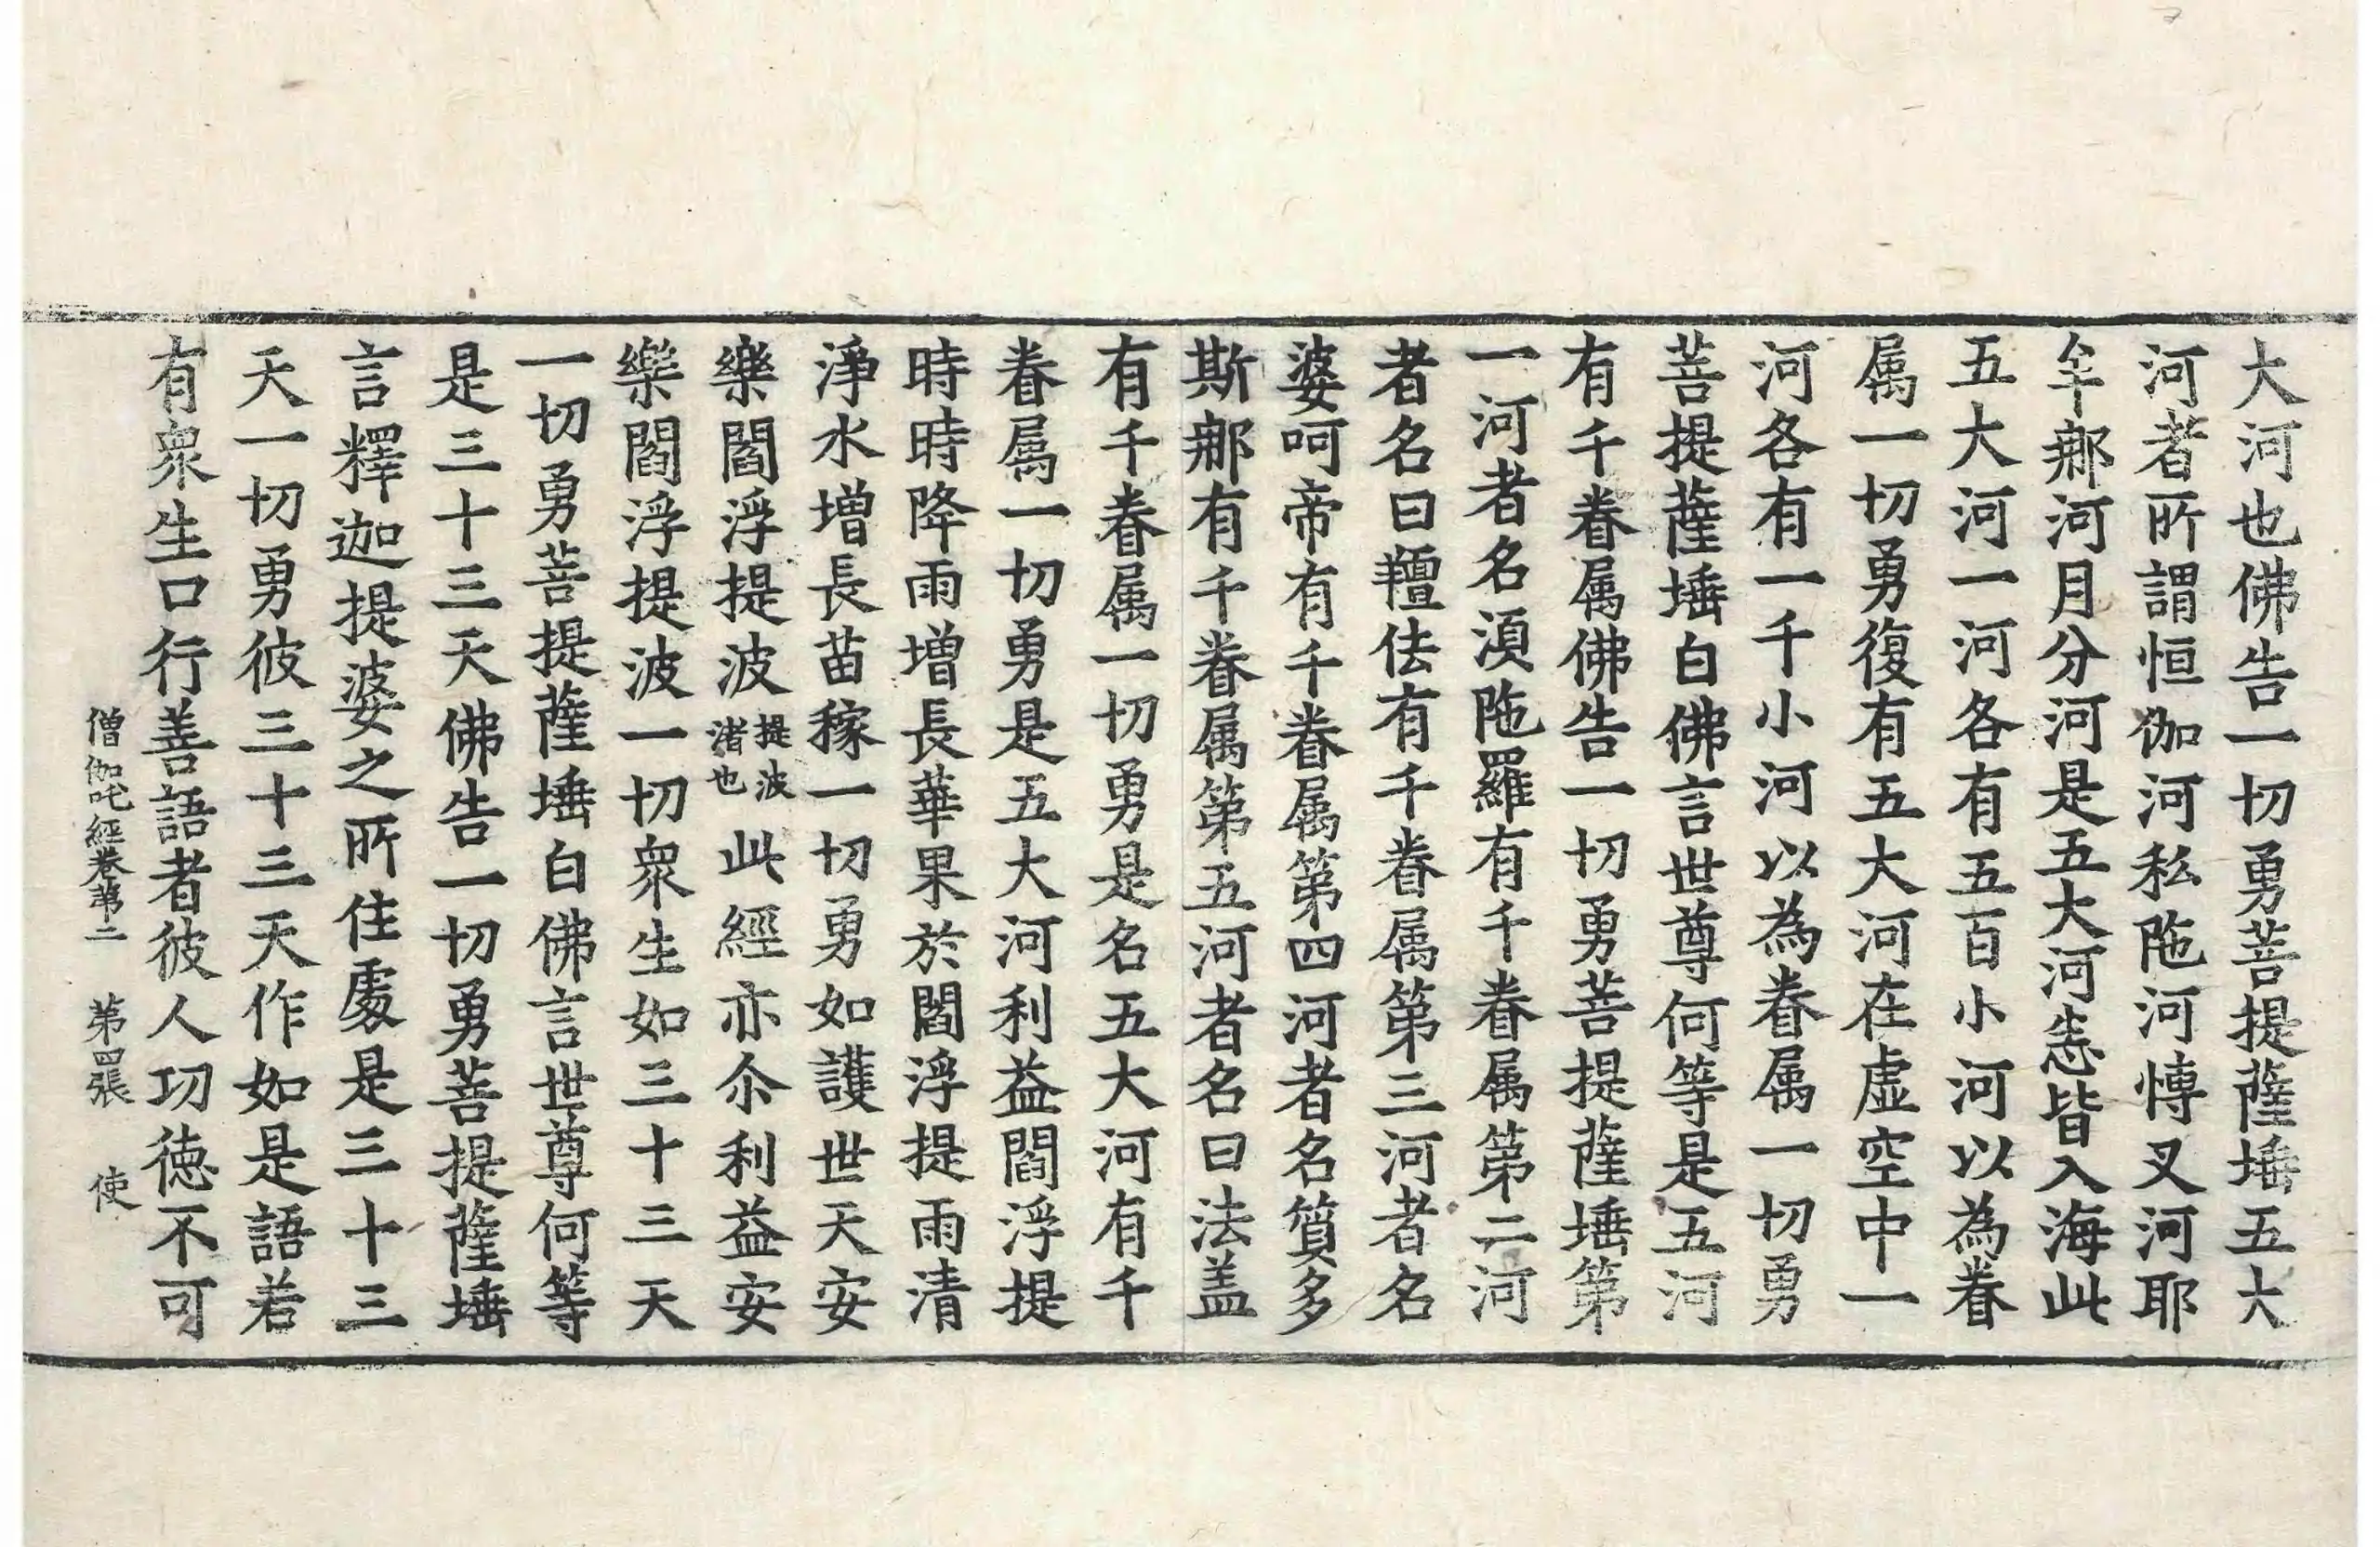 大河也佛告一切勇菩提薩埵五大
河者所謂恒伽河私陁河愽叉河耶
牟𨚗河月分河是五大河悉皆入海此
五大河一河各有五百小河以為眷
属一切勇復有五大河在虛空中一
河各有一千小河以為眷属一切勇
菩提薩埵白佛言世尊何等是五河
有千眷属佛告一切勇菩提薩埵第
一河者名湏陁羅有千眷属第二河
者名曰羶佉有千眷属第三河者名
婆呵帝有千眷属第四河者名質多
斯𨚗有千眷属第五河者名曰法盖
有千眷属一切勇是名五大河有千
眷属一切勇是五大河利益閻浮提
時時降雨增長華果於閻浮提雨清
淨水增長苗稼一切勇如護世天安
樂閻浮提波提波渚也此經亦尒利益安
樂閻浮提波一切衆生如三十三天
一切勇菩提薩埵白佛言世尊何等
是三十三天佛告一切勇菩提薩埵
言釋迦提婆之所住處是三十三
天一切勇彼三十三天作如是語若
有衆生口行善語者彼人功徳不可
僧伽吒經卷第二 第四張 使